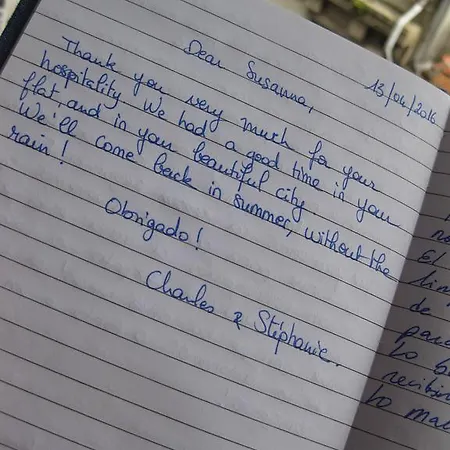 13/04/2016
Dear Susanna,
Thank you very much for your
hospitality. We had a good time in your
flat, and in your beautiful city.
We'll come back in summer, without the
rain!
Obrigado!
Charles & Stéphanie.
El
de